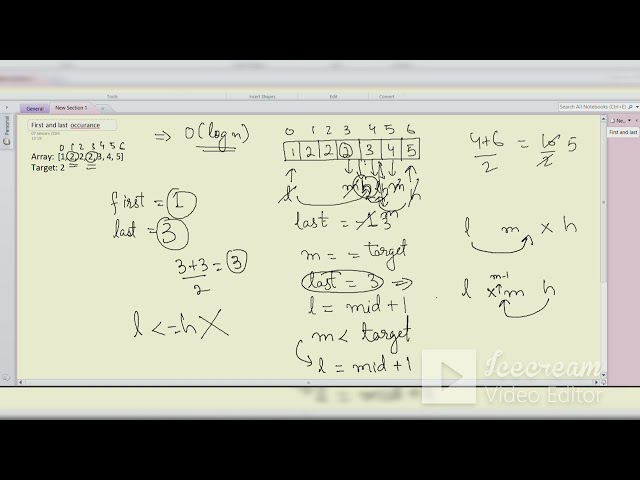 Tools
Insert Shapes
Edit
Convert
General
New Section 1
Search All Notebooks (Ctrl+E)
Personal
Ne...
First and last
First and last occurance
0 1 2 3 4 5 6
Array: [1, 2, 2, 2, 3, 4, 5]
Target: 2
⇒ O(log n)
first = 1
last = 3
3+3/2 = 3
l <= h X
0 1 2 3 4 5 6
1 2 2 2 3 4 5
l m h m h
m
last = -1 3
m == target
last = 3 ⇒
l = mid + 1
m < target
l = mid + 1
4+6/2 = 10/2 5
l m x h
m-1
l x m h
Icecream
Video Editor